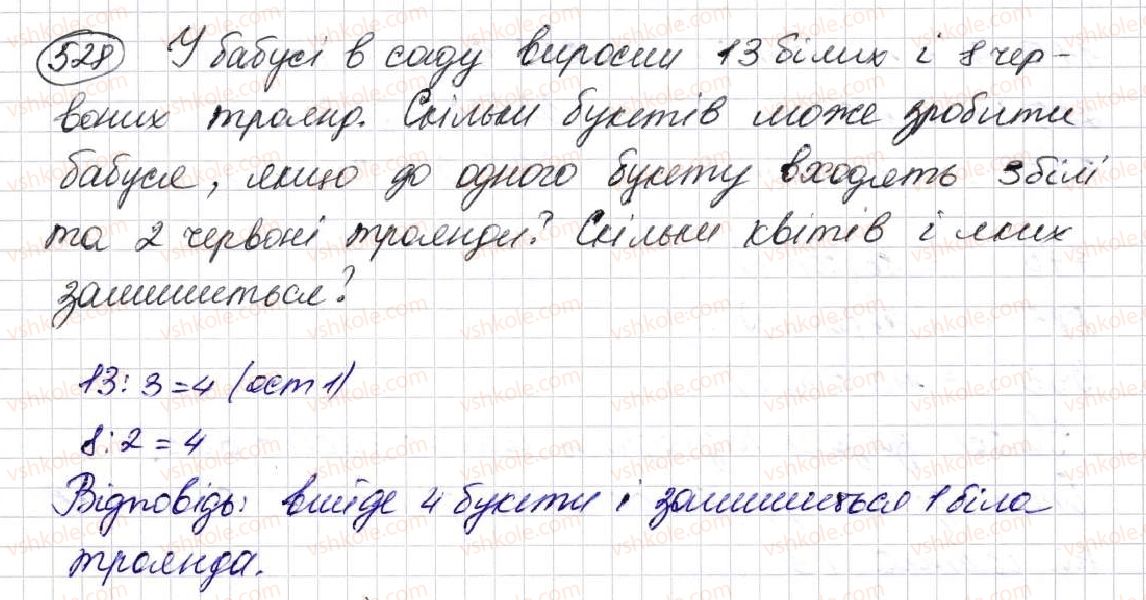 528 У бабусі в саду виросли 13 білих і 8 чер-
воних троянд. Скільки букетів може зробити
бабуся, якщо до одного букету входять 3 білі
та 2 червоні троянди? Скільки квітів і яких
залишиться?
13 : 3 = 4 (ост 1)
8 : 2 = 4
Відповідь: вийде 4 букети і залишиться 1 біла
троянда.